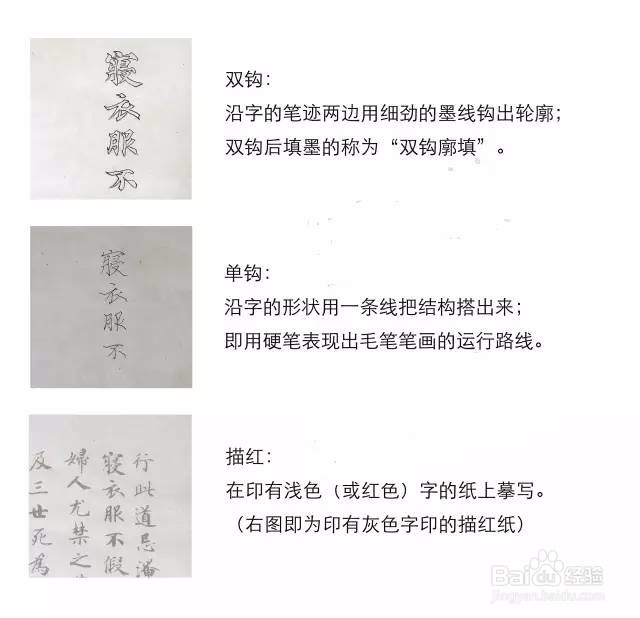 寢衣服不
双钩：
沿字的笔迹两边用细劲的墨线钩出轮廓；
双钩后填墨的称为“双钩廓填”。
寢衣服不
单钩：
沿字的形状用一条线把结构搭出来；
即用硬笔表现出毛笔笔画的运行路线。
行此道忌滞
寢衣服不假
婦人尤禁之
及三世死為
描红：
在印有浅色（或红色）字的纸上摹写。
（右图即为印有灰色字印的描红纸）
Baidu经验
jingyan.baidu.com